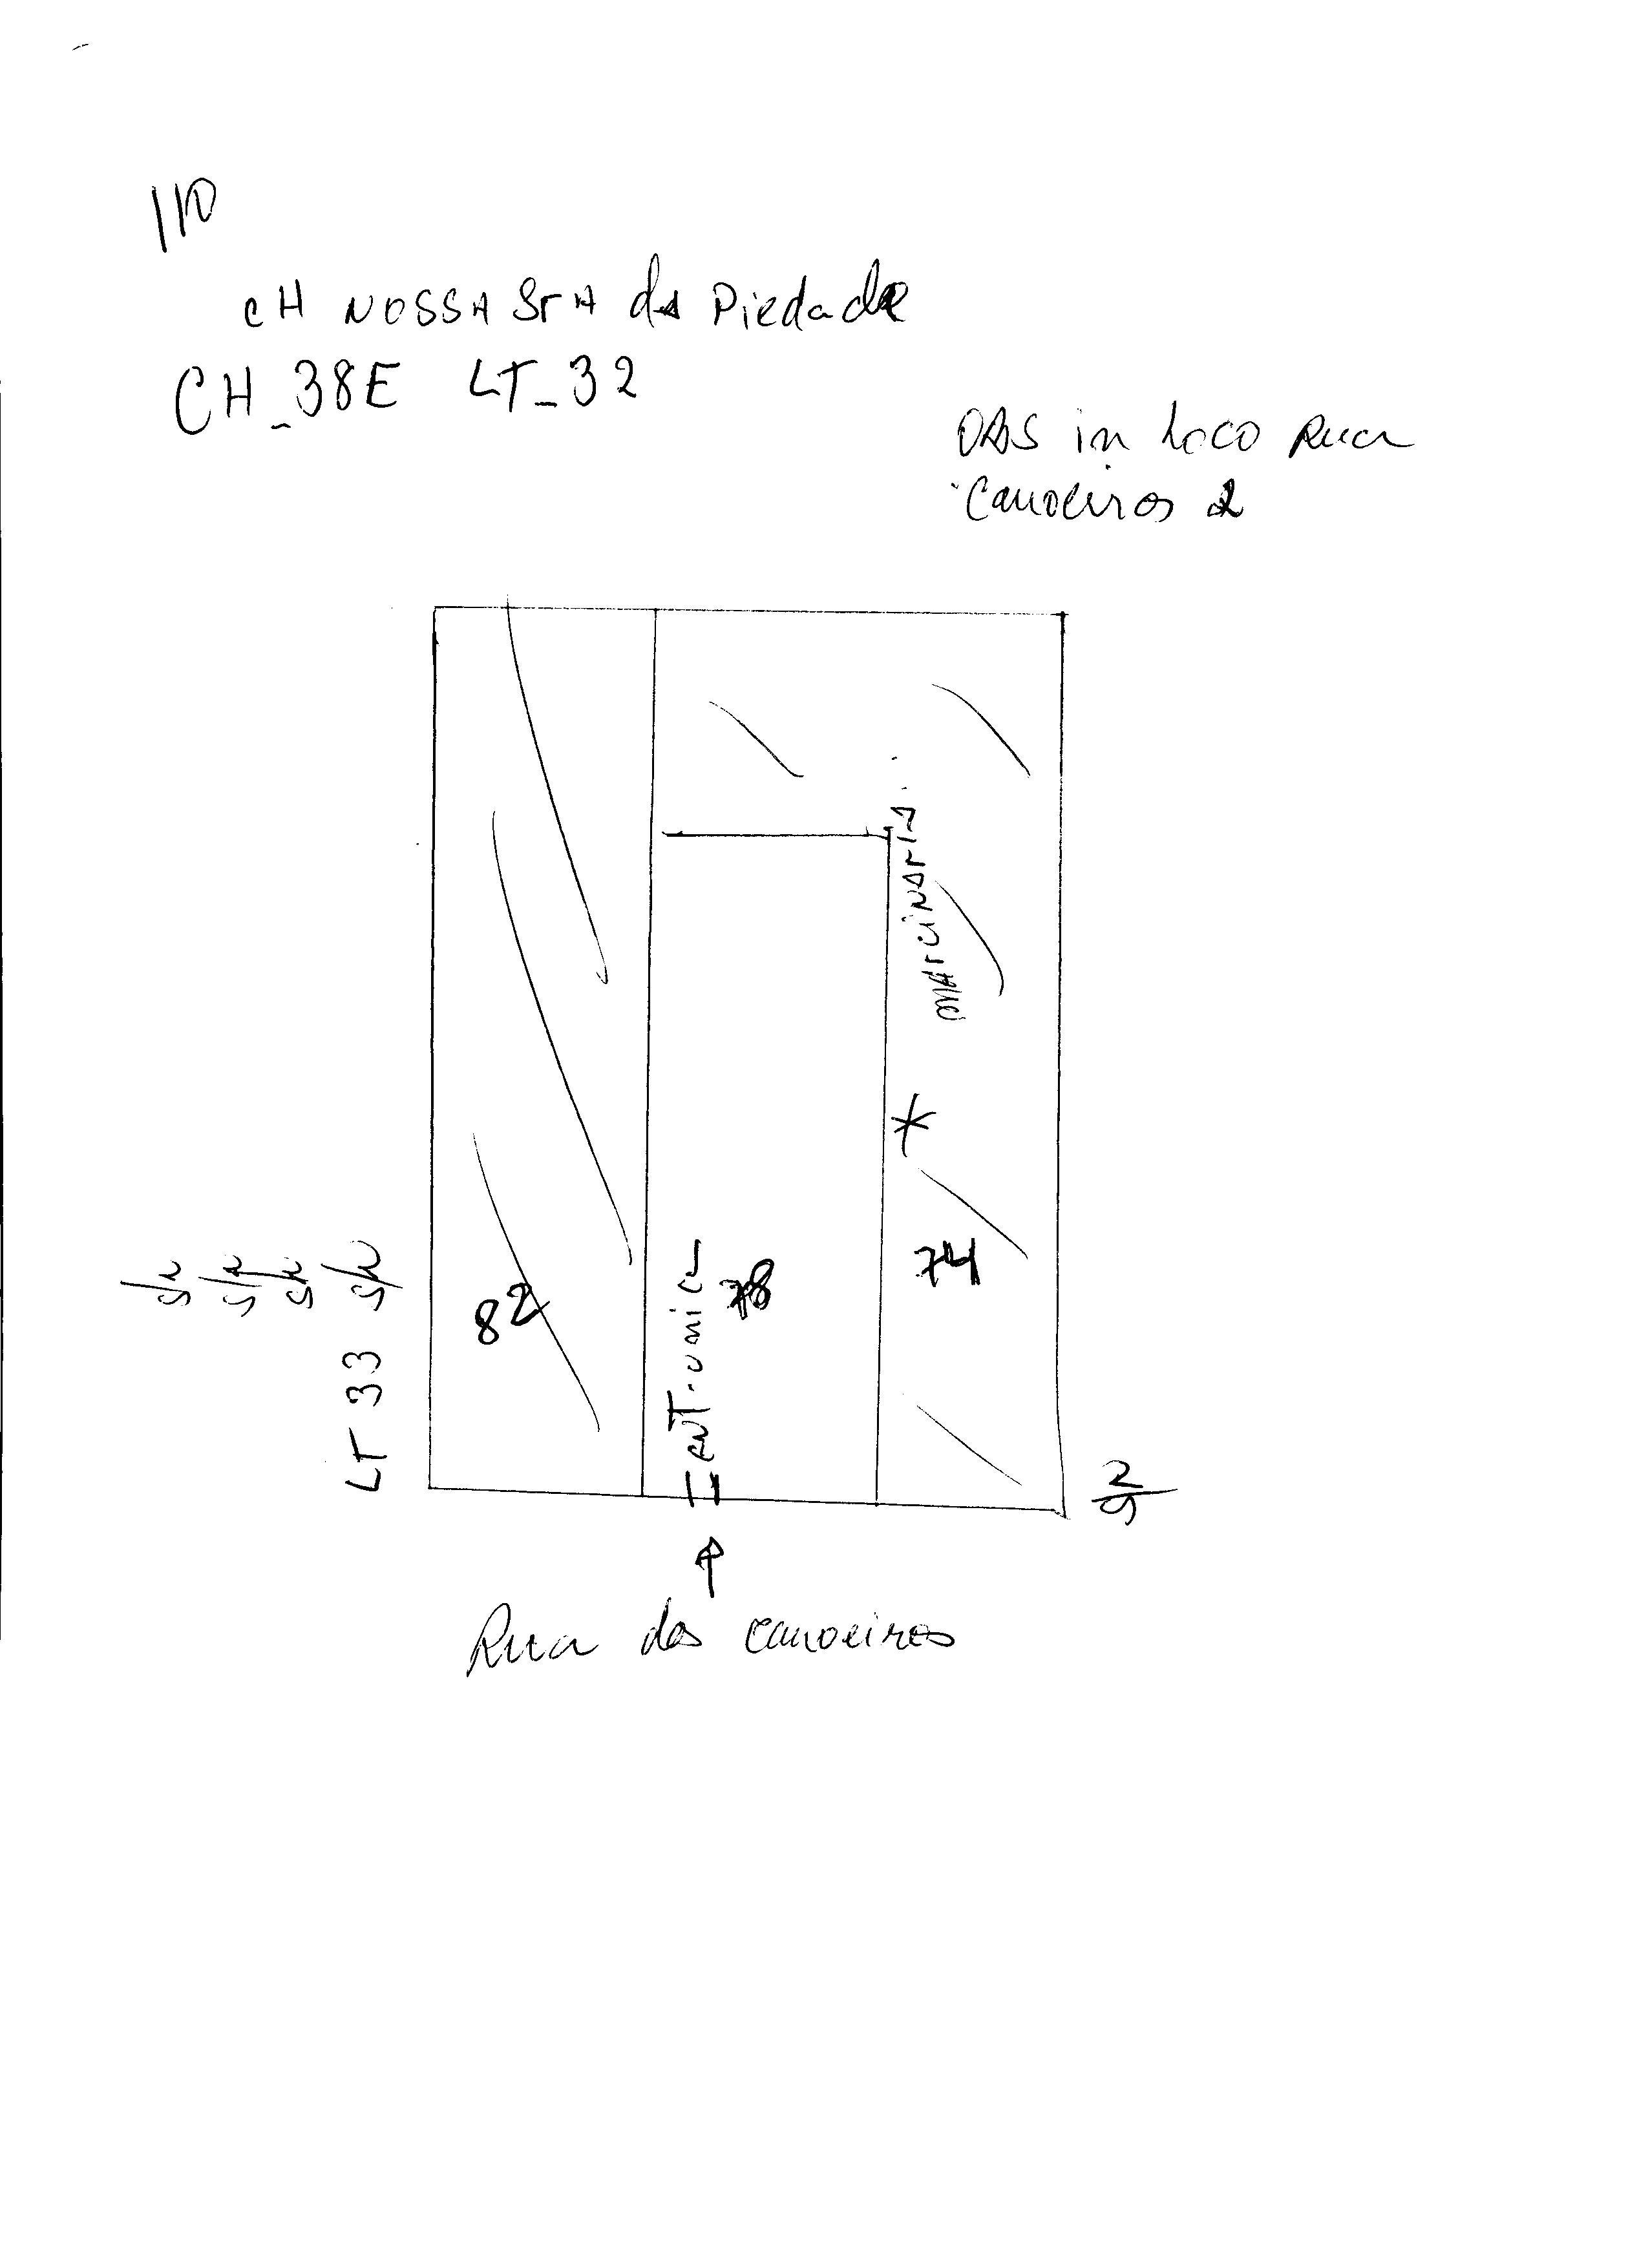 110
CH NOSSA STA da Piedade
CH_38E LT_32
OBS in loco Rua
Canoeiros 2
MARCINARIA
74
78
ENT. UNICA
82
LT 33
Rua dos canoeiros